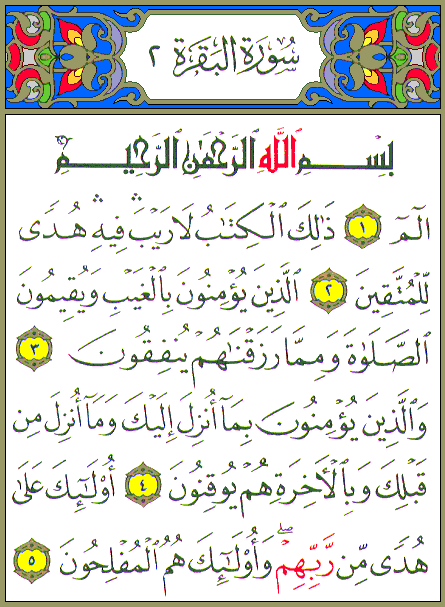 سُورَةُ البَقَرَة ٢
بِسْمِ ٱللَّهِ ٱلرَّحْمَٰنِ ٱلرَّحِيمِ
الٓمٓ ١ ذَٰلِكَ ٱلْكِتَٰبُ لَا رَيْبَ ۛ فِيهِ ۛ هُدًى
لِّلْمُتَّقِينَ ٢ ٱلَّذِينَ يُؤْمِنُونَ بِٱلْغَيْبِ وَيُقِيمُونَ
ٱلصَّلَوٰةَ وَمِمَّا رَزَقْنَٰهُمْ يُنفِقُونَ ٣
وَٱلَّذِينَ يُؤْمِنُونَ بِمَآ أُنزِلَ إِلَيْكَ وَمَآ أُنزِلَ مِن
قَبْلِكَ وَبِٱلْأَخِرَةِ هُمْ يُوقِنُونَ ٤ أُو۟لَٰٓئِكَ عَلَىٰ
هُدًى مِّن رَّبِّهِمْ ۖ وَأُو۟لَٰٓئِكَ هُمُ ٱلْمُفْلِحُونَ ٥